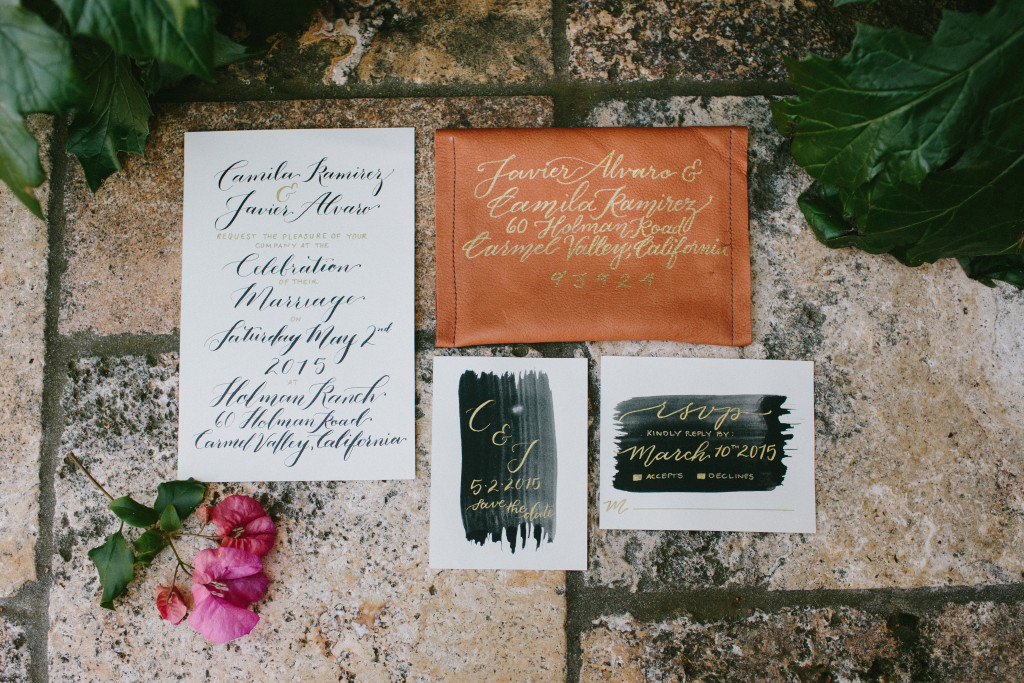 Camila Ramirez
&
Javier Alvaro
REQUEST THE PLEASURE OF YOUR
COMPANY AT THE
Celebration
OF THEIR
Marriage
ON
Saturday May 2nd
2015
AT
Holman Ranch
60 Holman Road
Carmel Valley, California
Javier Alvaro &
Camila Ramirez
60 Holman Road
Carmel Valley, California
93924
C
& J
5·2·2015
save the date
rsvp
KINDLY REPLY BY:
March 10TH 2015
ACCEPTS DECLINES
M